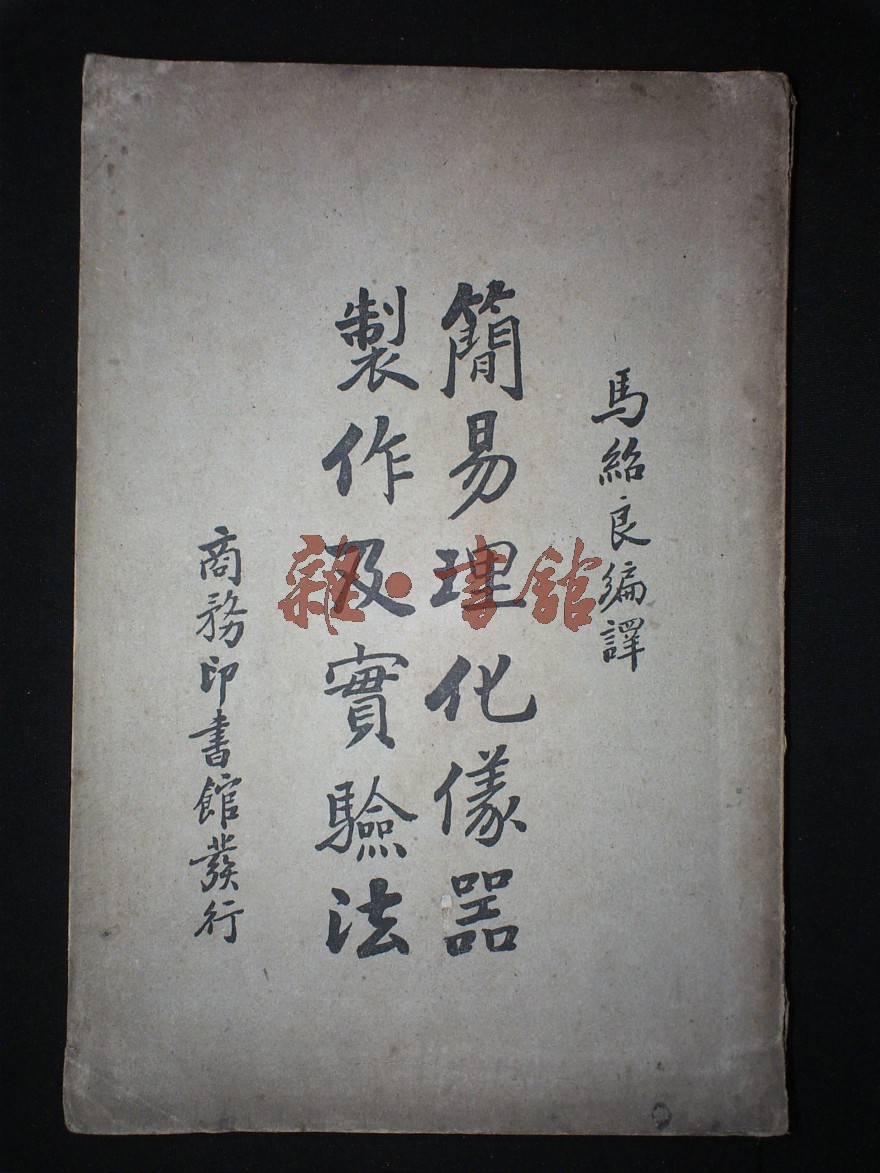 馬紹良編譯
簡易理化儀器
製作及實驗法
商務印書館發行
雜·書館